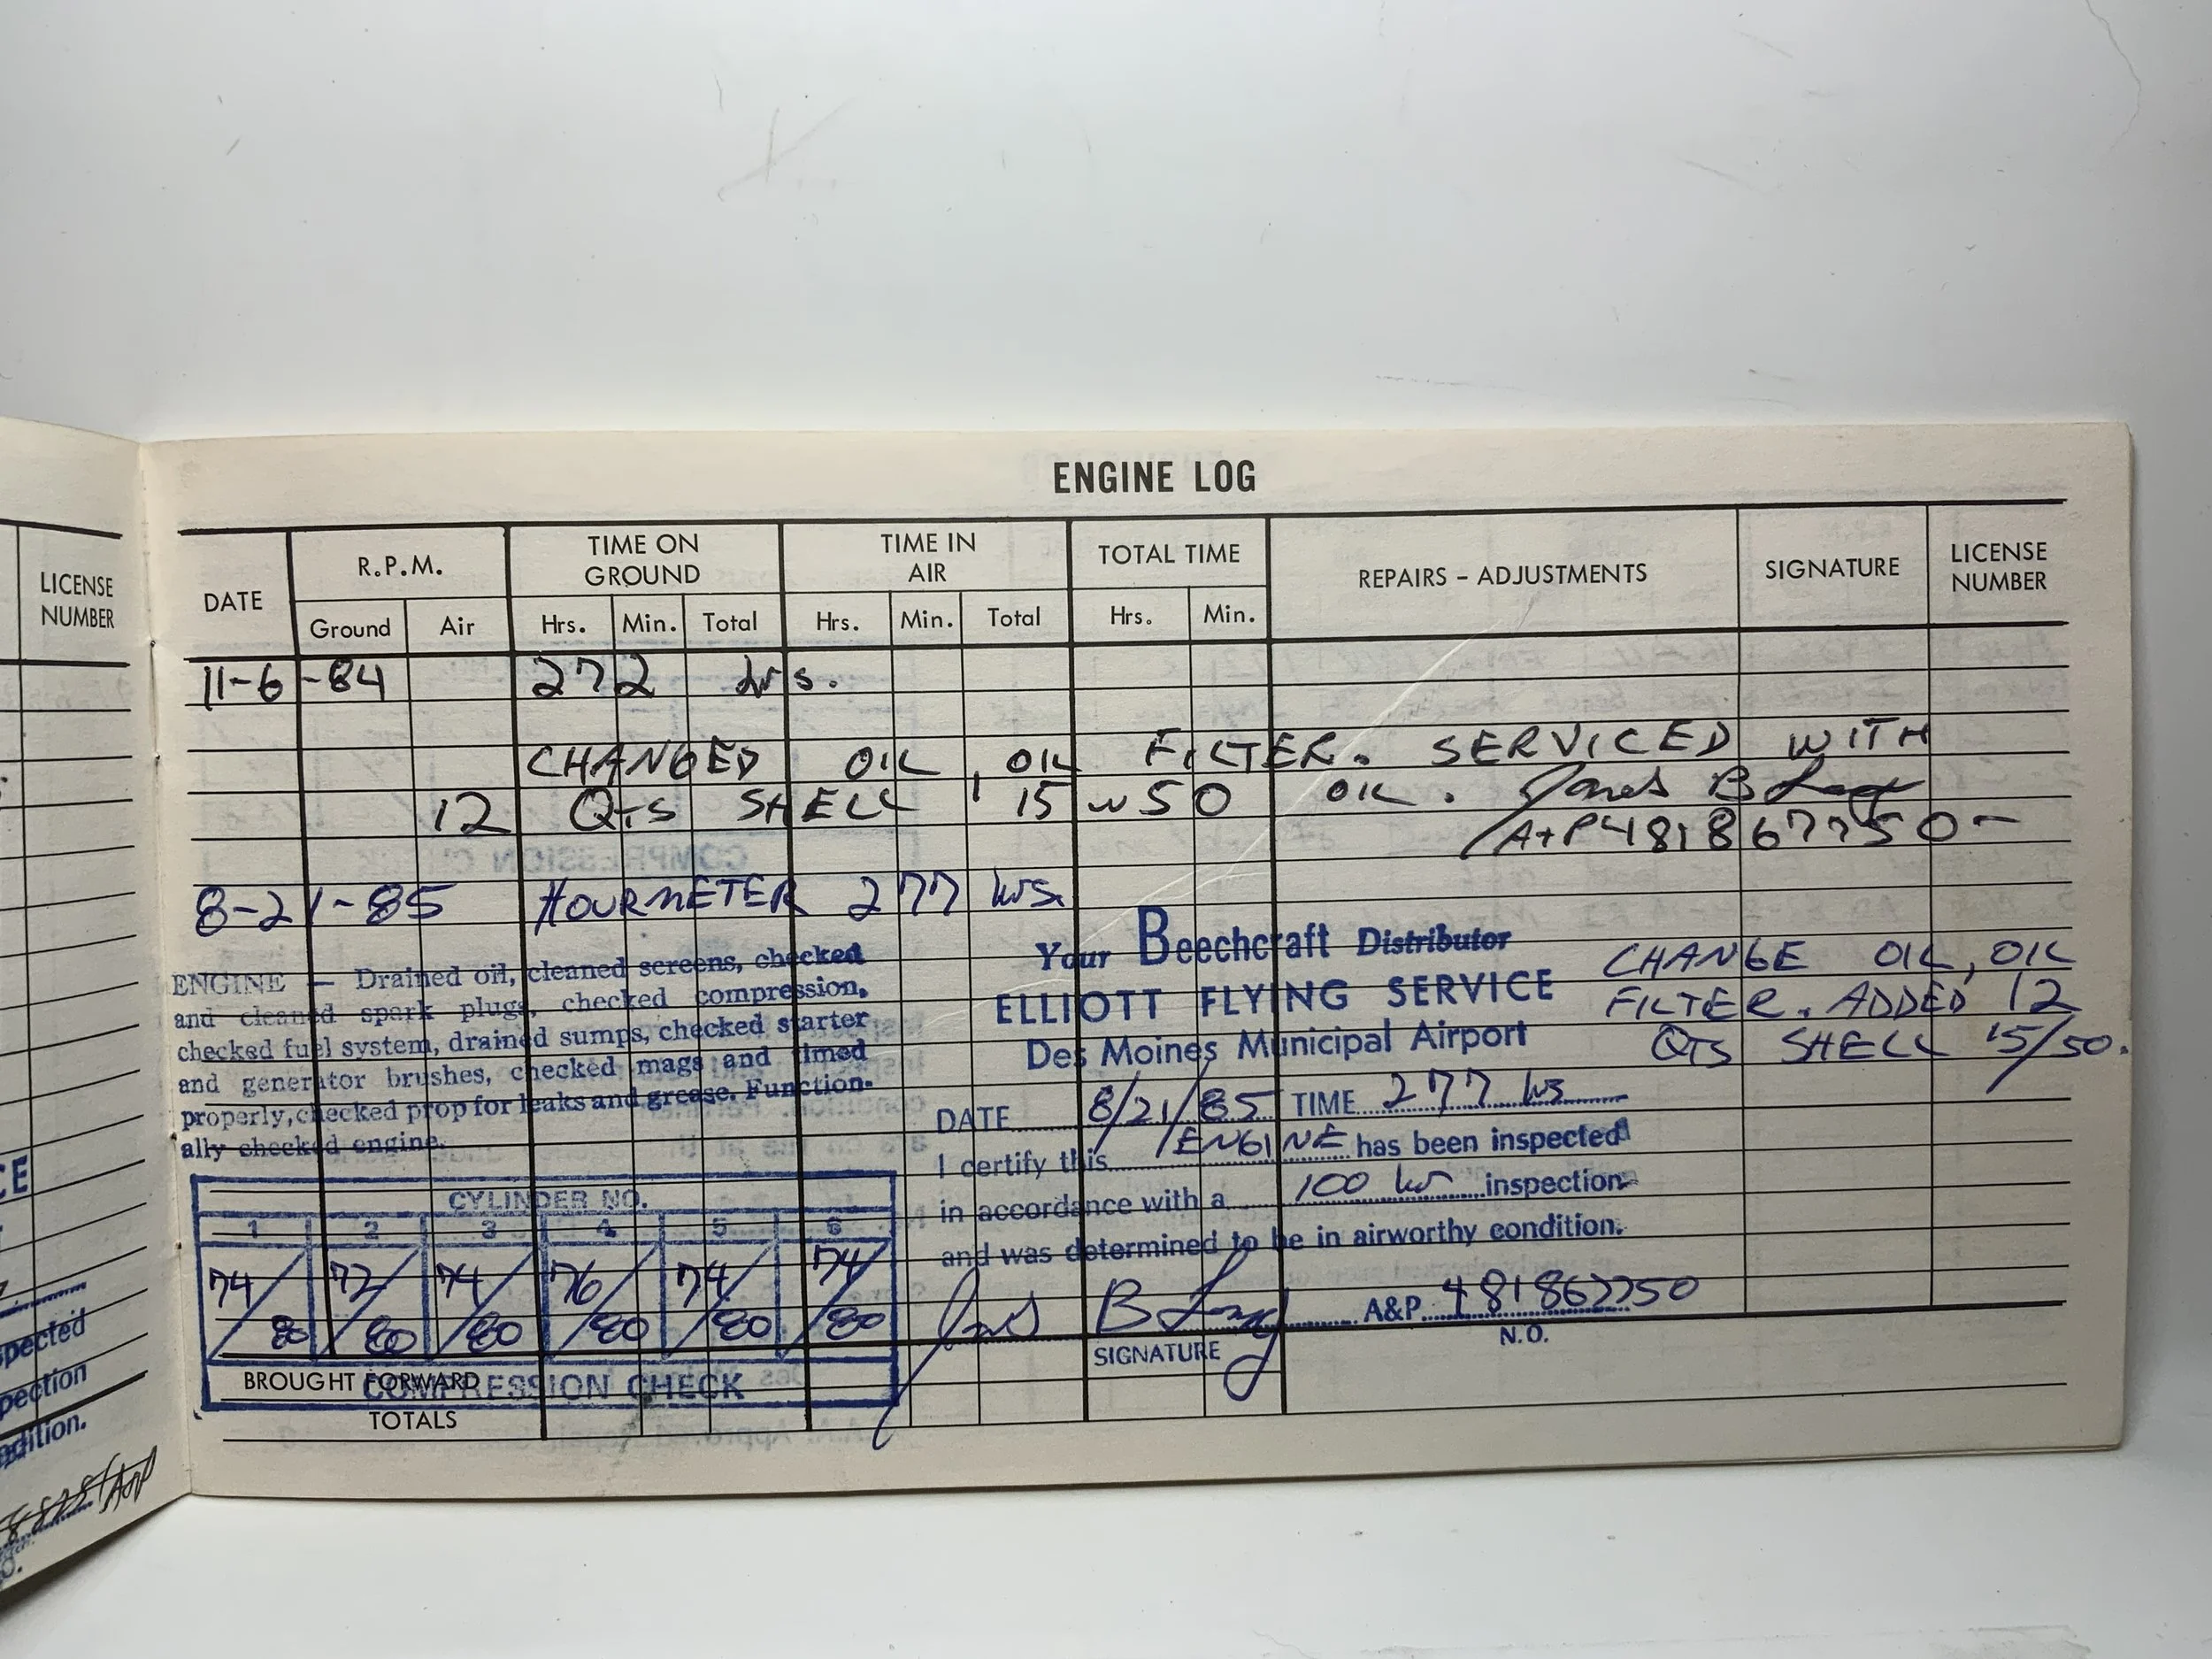 ENGINE LOG
LICENSE NUMBER
DATE R.P.M. TIME ON GROUND TIME IN AIR TOTAL TIME REPAIRS – ADJUSTMENTS SIGNATURE LICENSE NUMBER
Ground Air Hrs. Min. Total Hrs. Min. Total Hrs. Min.
11-6-84 272 hrs.
CHANGED OIL, OIL FILTER. SERVICED WITH
12 QTS SHELL 15w50 OIL. B
A+P 481867750
8-21-85 HOURMETER 277 hrs.
ENGINE — Drained oil, cleaned screens, checked
and cleaned spark plugs, checked compression,
checked fuel system, drained sumps, checked starter
and generator brushes, checked mags and timed
properly, checked prop for leaks and grease. Function-
ally checked engine.
Your Beechcraft Distributor
ELLIOTT FLYING SERVICE
Des Moines Municipal Airport
CHANGE OIL, OIL
FILTER. ADDED 12
QTS SHELL 15/50.
DATE 8/21/85 TIME 277 hrs
I certify this ENGINE has been inspected
in accordance with a 100 hr inspection
and was determined to be in airworthy condition.
B A&P 481867750
SIGNATURE N.O.
CYLINDER NO.
1 2 3 4 5 6
74/80 72/80 74/80 76/80 74/80 74/80
COMPRESSION CHECK
BROUGHT FORWARD
TOTALS
CE
spected
pection
ndition.